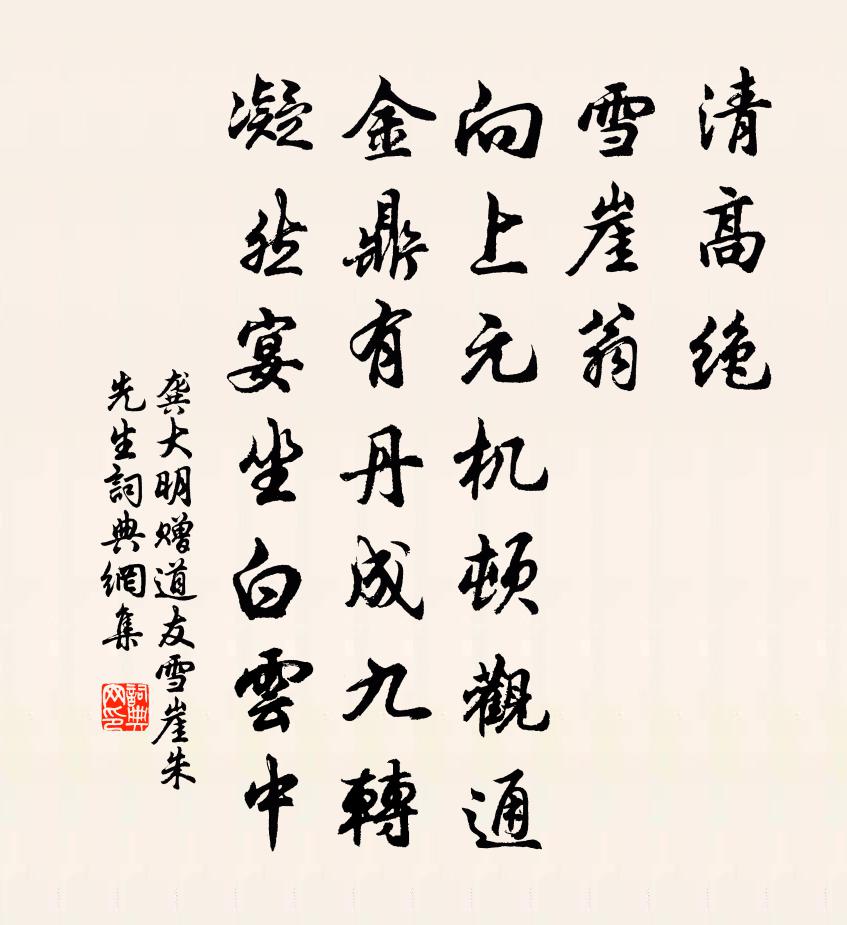 清高绝
雪崖翁
向上元机顿觀通
金鼎有丹成九轉
凝然宴坐白雲中
龚大明赠道友雪崖朱
先生詞典網集
詞典
网印